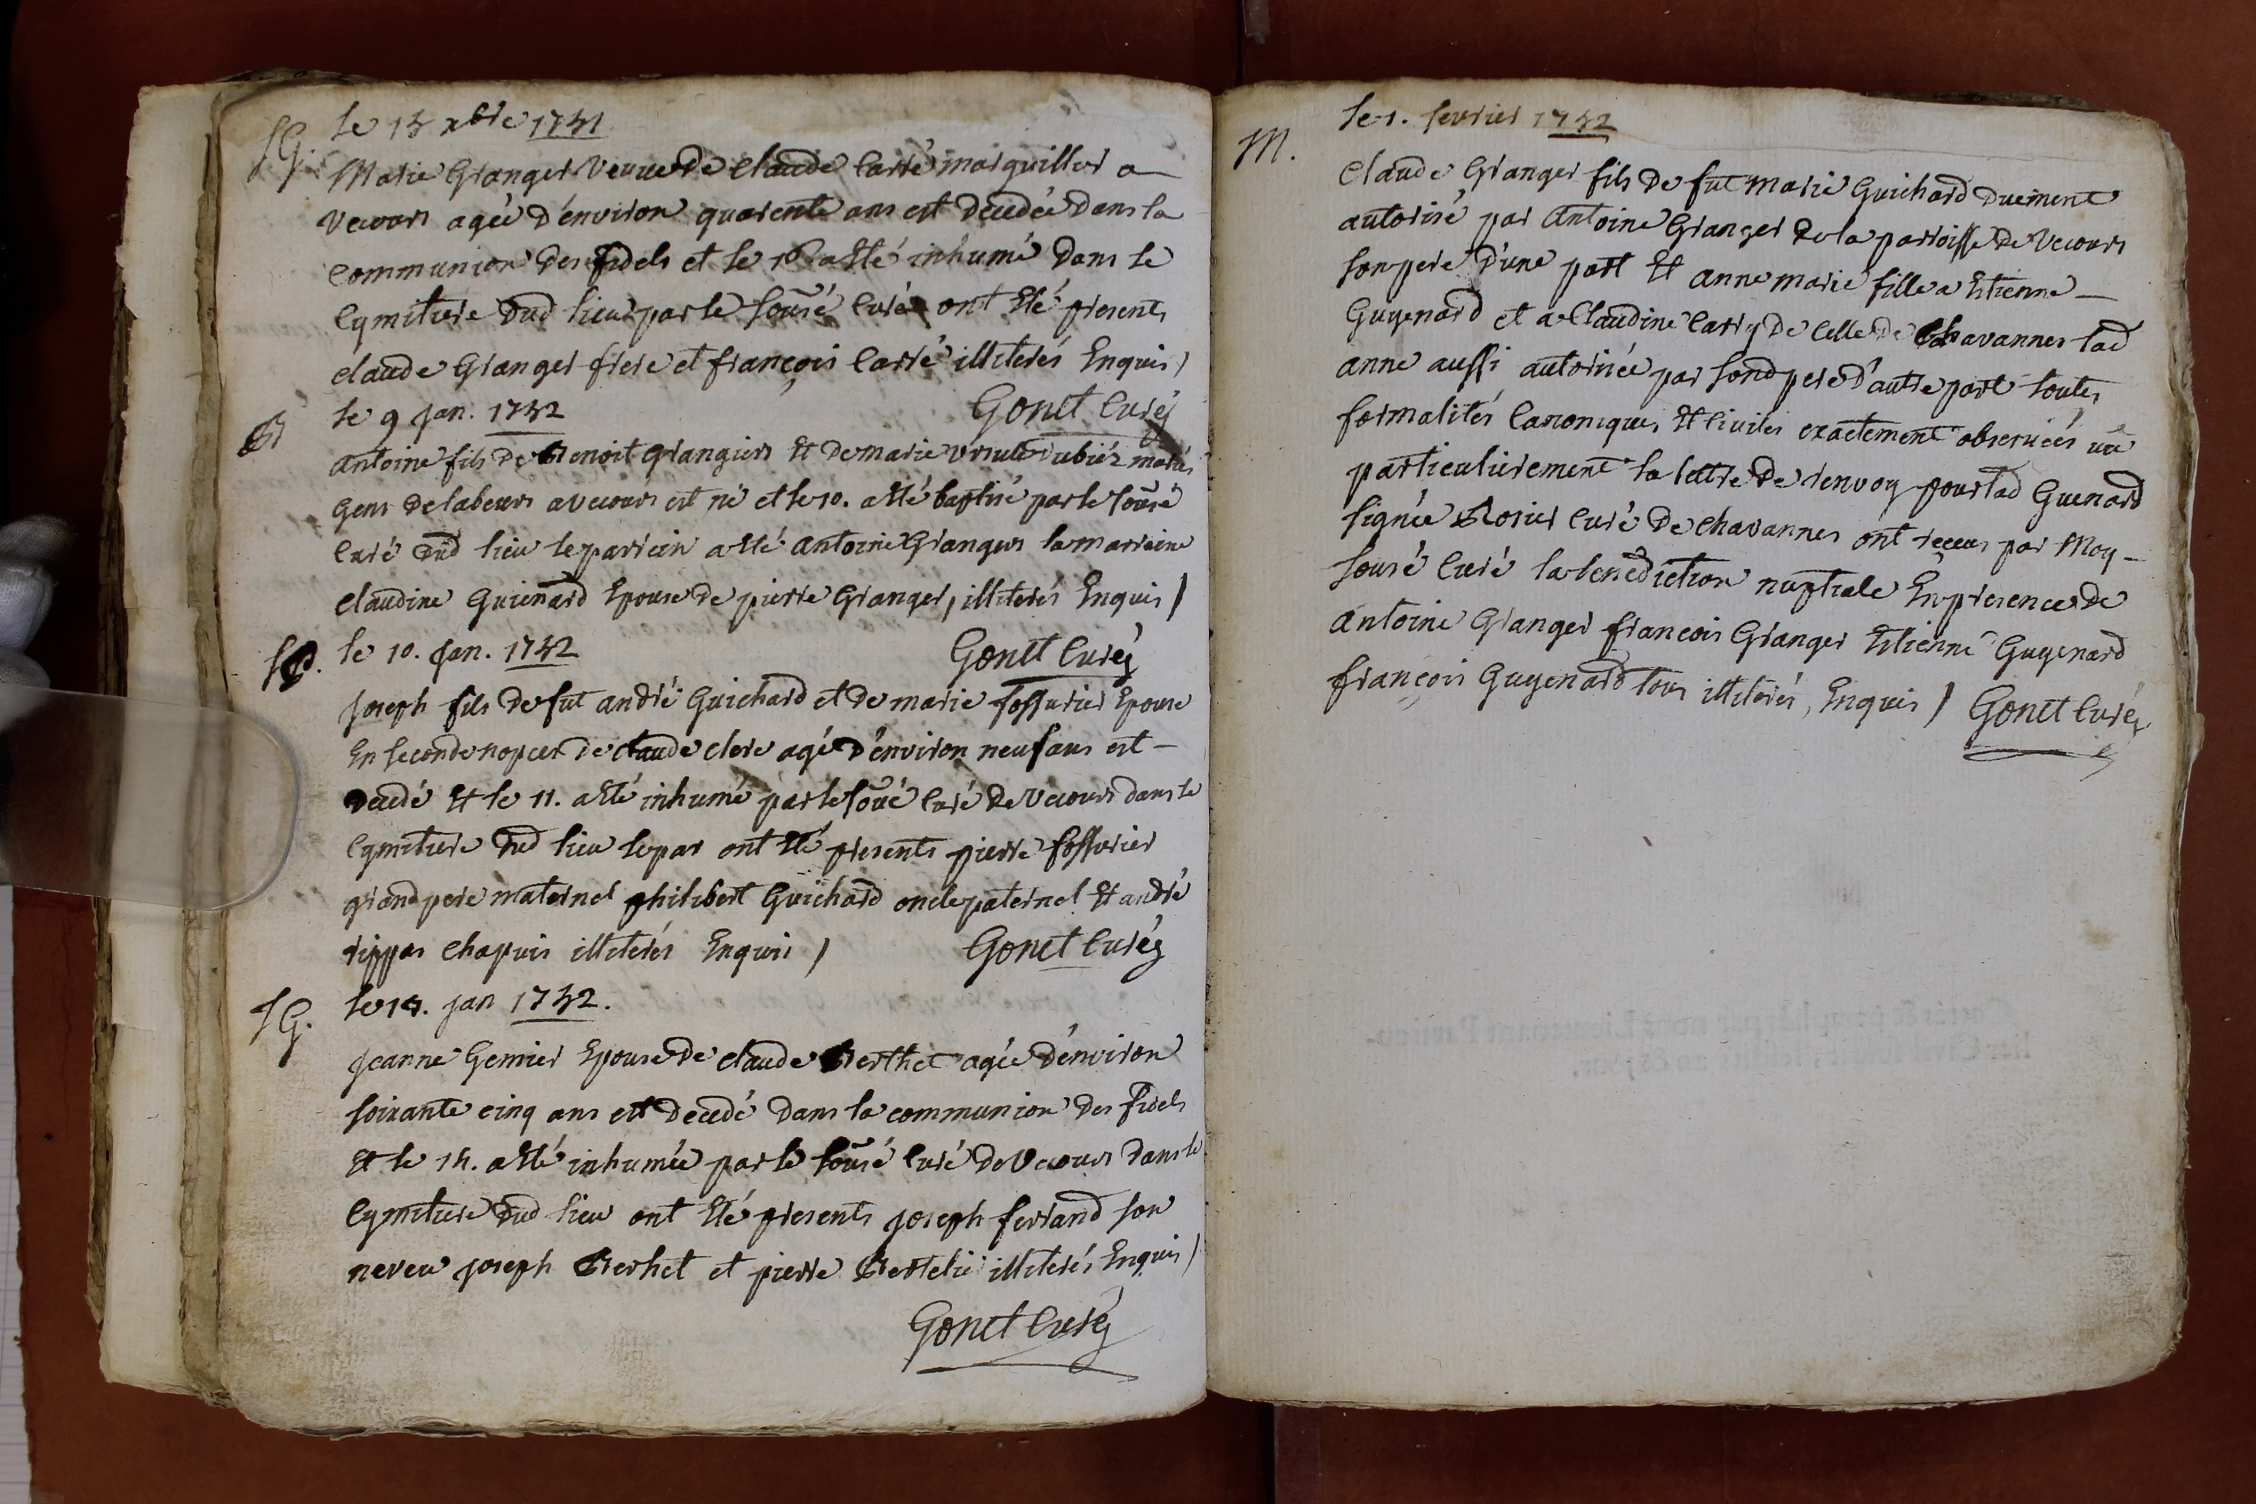 SG. Le 15 xbre 1751
Marie Granger Veuve de Claude Carré marguiller a
Vecours agée d'environ quarente ans est decedée dans la
communion des fidels et le 16 a eté inhumé dans le
Cymitiere dud lieu par le sousé Curé ont Eté presents
claude Granger frere et françois Carré illiterés Enquis /
Gonet Curé
B le 9 Jan. 1752
antoine fils de Benoit Grangier Et de marie ursule mariés
gens de labeurs a vecours est né et le 10. a eté baptisé par le sousé
Curé dud lieu le parrein a eté antoine Granger la marreine
claudine Guienard Epouse de pierre Granger, illiterés Enquis /
Gonet Curé
le 10. Jan. 1752
Joseph fils de fut andré Guichard et de marie fossurier Epouse
En seconde nopces de claude clere agé d'environ neuf ans est
decedé Et le 11. a eté inhumé par le sousé Curé de Vecours dans le
Cymitiere dud lieu ont Eté presents pierre fossurier
grand pere maternel philibert Guichard oncle paternel Et andré
rippes chapuis illiterés Enquis /
Gonet Curé
SG. le 14. jan 1752.
Jeanne Gemier Epouse de claude Berthet agée d'environ
soixante cinq ans est decedé dans la communion des fidels
Et le 15. a eté inhumée par le sousé Curé de Vecours dans le
Cymitiere dud lieu ont Eté presents joseph ferrand son
neveu joseph Berhet et pierre Bertelié illiterés Enquis /
Gonet Curé
M. le 1. fevrier 1752
Claude Granger fils de fut marie Guichard duement
autorisé par Antoine Granger de la parroisse de Vecours
son pere d'une part Et anne marie fille a Etienne
Guyenard et a Claudine Carry de Celle de Chavannes lad
anne aussi autorisée par sond pere d'autre part toutes
formalités Canoniques Et Civiles exactement observées
particulierement la lettre de renvoy pour lad Guenard
signée Rosier Curé de chavannes ont receus par Moy
sousé Curé la benediction nuptiale En presence de
Antoine Granger francois Granger Etienne Guyenard
françois Guyenard tous illiterés, Enquis / Gonet Curé